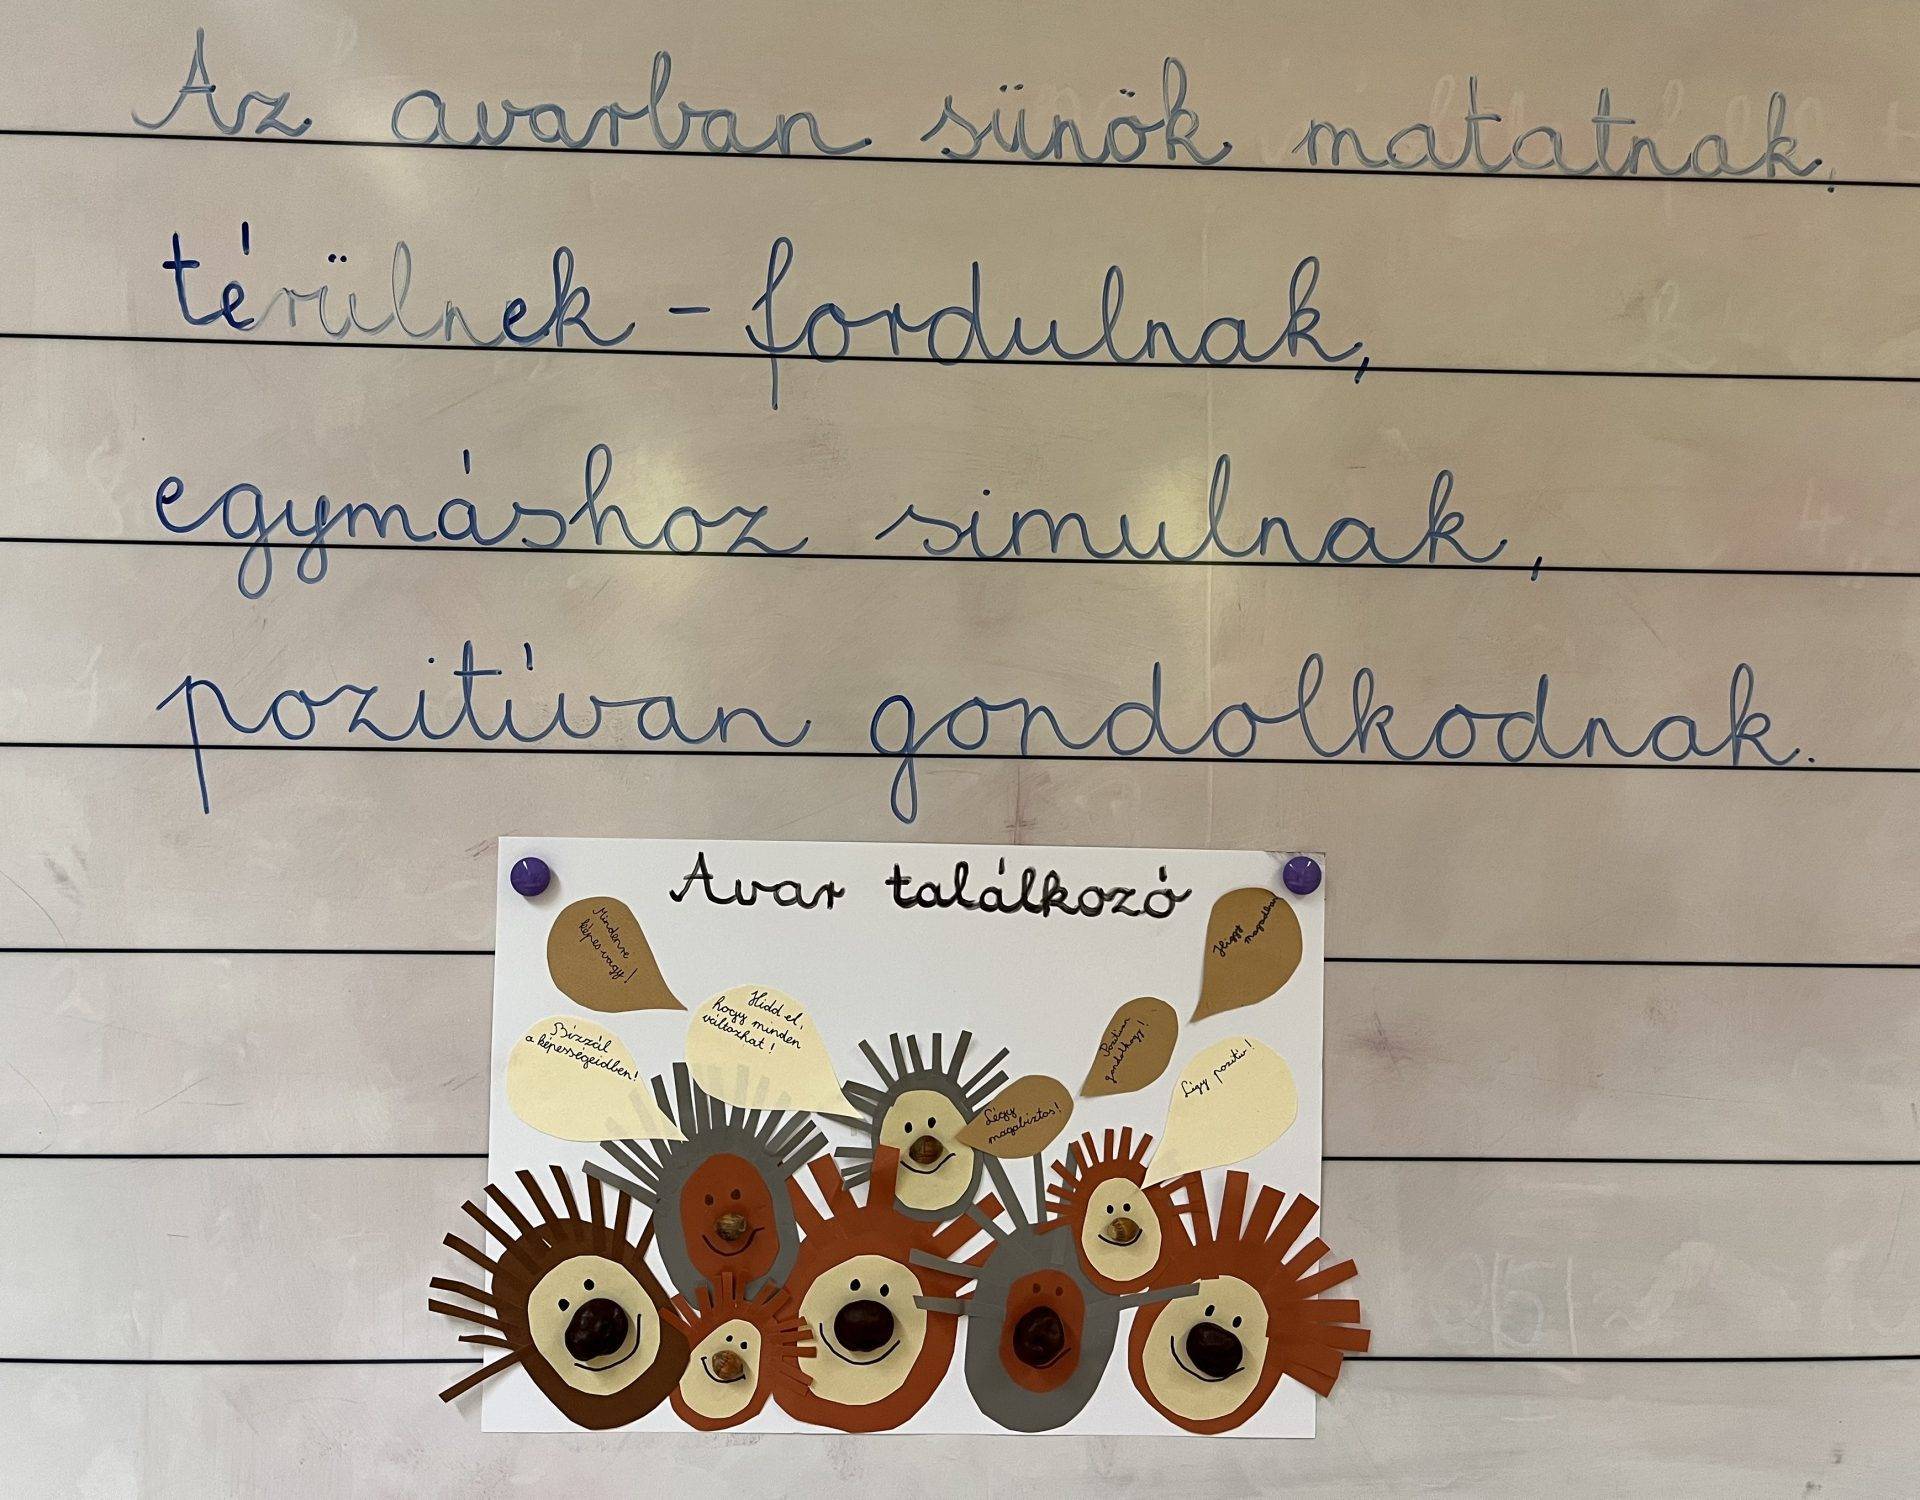 Az avarban sünök matatnak.
térülnek - fordulnak,
egymáshoz simulnak,
pozitívan gondolkodnak.
Avar találkozó
Mindenre
képes vagy!
Higgy
magadban
Hidd el,
hogy minden
változhat!
Bízzál
a képességeidben!
Pozitívan
gondolkozz!
Légy pozitív!
Légy
magabiztos!